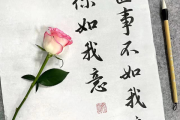 世事不如我
你如我意